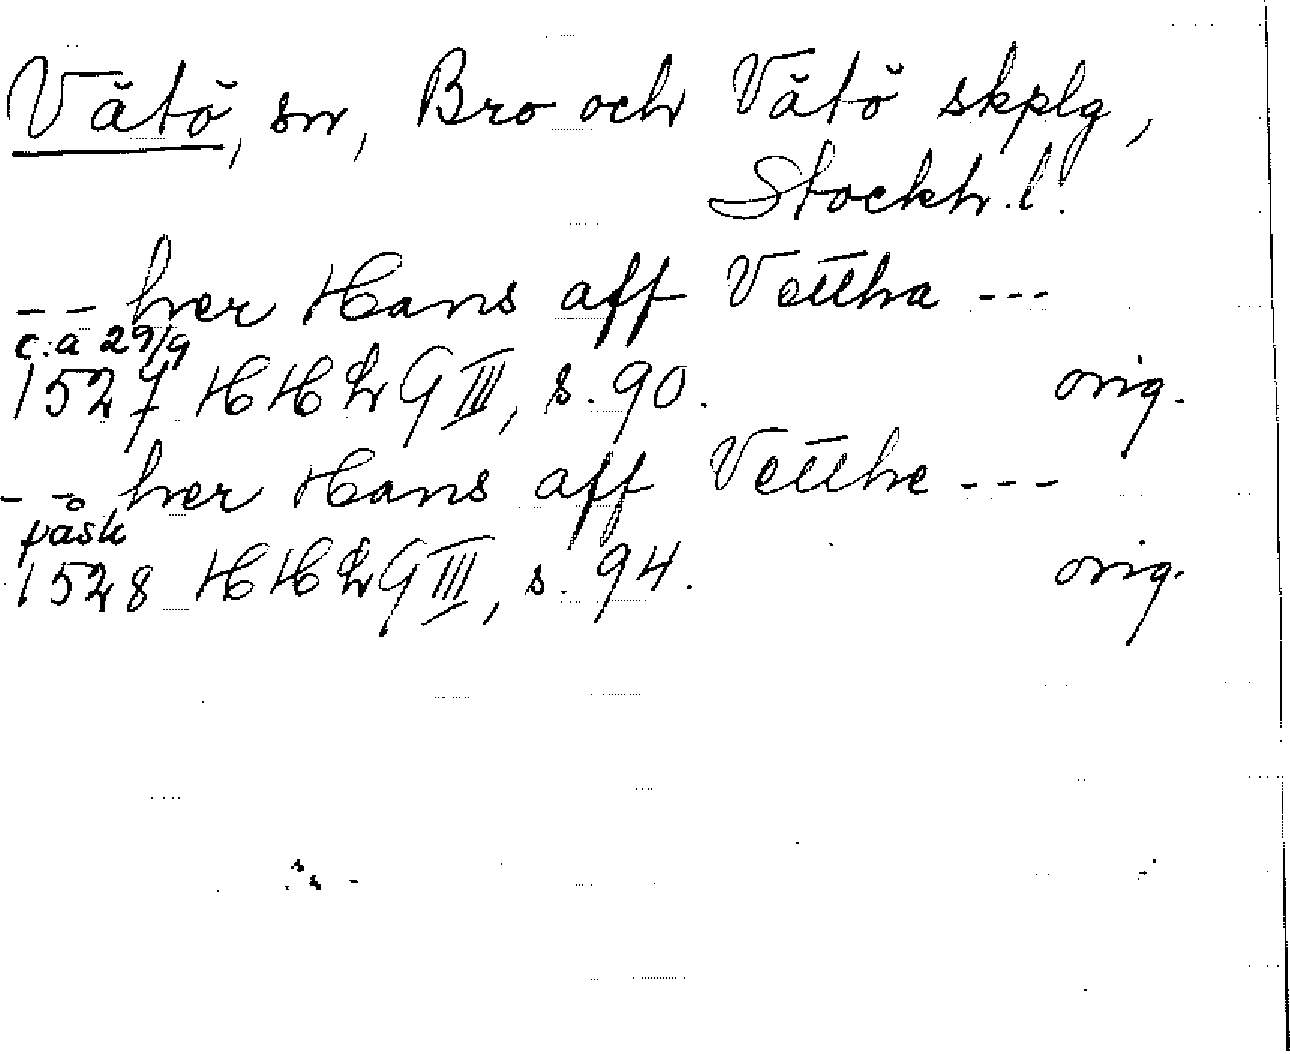 Vätö, sn, Bro och Vätö skplg,
Stockh. l.
-- her Hans aff Vettha ---
c:a 29/9
1527 HHL 9 III, s. 90. orig.
-- her Hans aff Vetthe ---
påsk
1528 HHL 9 III, s. 94. orig.